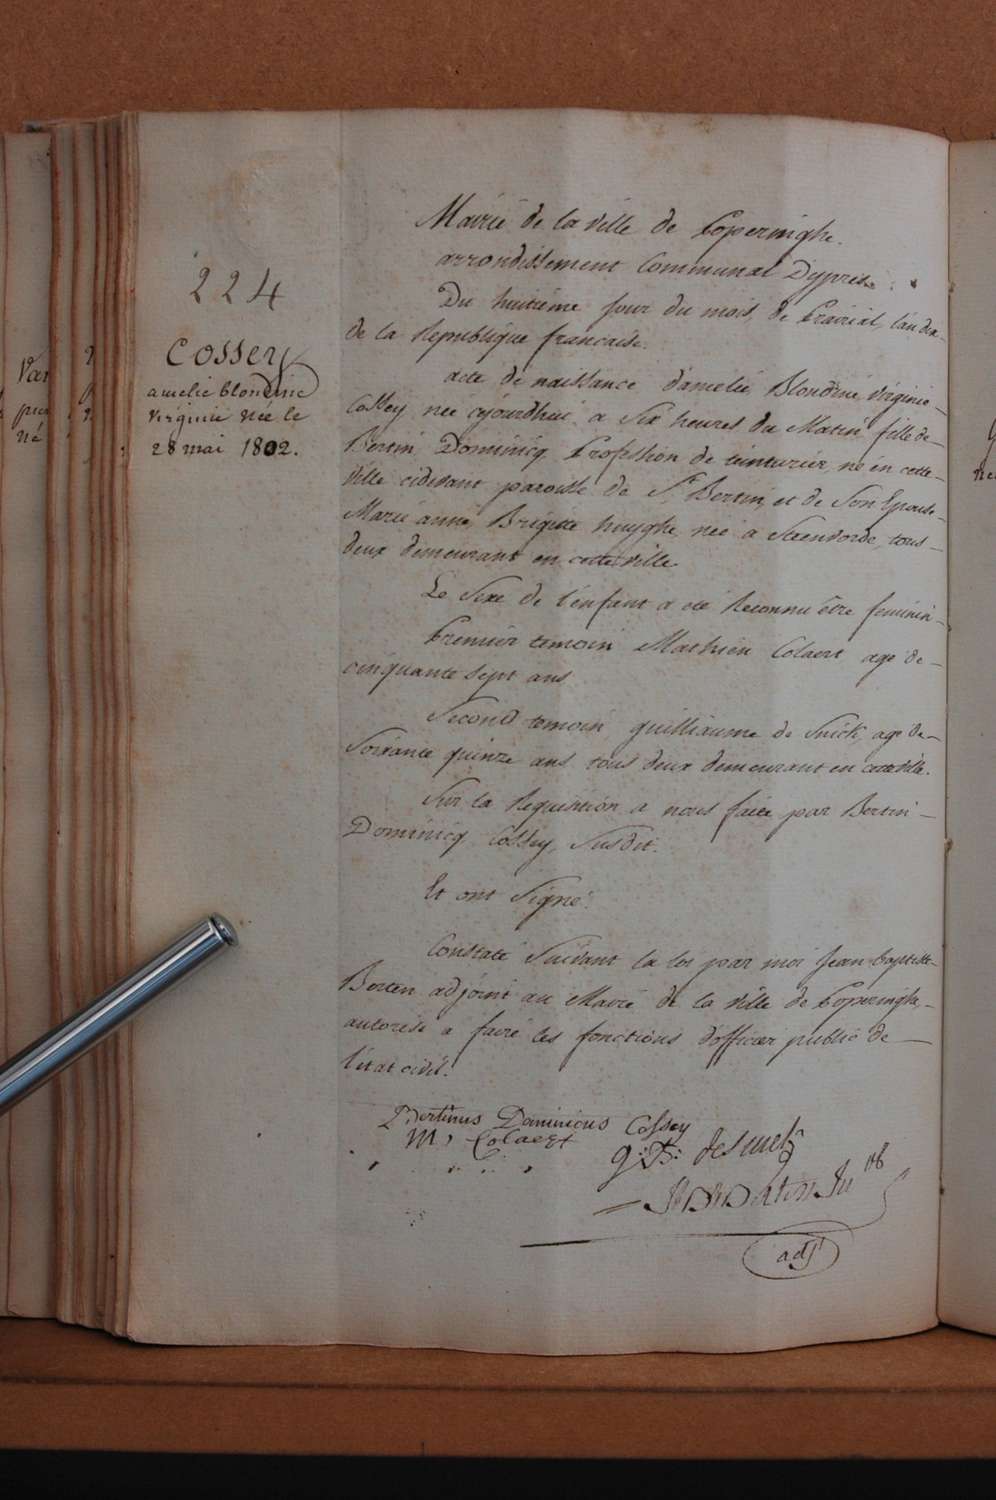 224
Cossey
amelie blondine
virginie née le
28 mai 1802.
Mairie de la ville de Poperinghe.
arrondissement Communal D'ypres.
Du huitiéme jour du mois de Prairial, l'an dix
de la Republique francaise.
acte de naissance d'amelie, Blondine, virginie
Cossey, née cejourdhui a Six heures du Matin fille de
Bertin Dominicq Profession de teinturier, né en cette
ville cidevant paroisse de St Bertin, et de Son Epouse
Marie anne, Brigitte huyghe, née a Steenvorde, tous
deux demeurant en cette ville
Le Sexe de l'enfant a été Reconnu être feminin
Premier temoin Mathieu Colaert agé de
cinquante Sept ans
Second temoin guilliaume de Snick, agé de
Soixante quinze ans tous deux demeurant en cette ville.
Sur la Requisition a nous faite par Bertin
Dominicq Cossey, Susdit.
Et ont Signé.
Constaté Suivant la loi par moi Jean baptiste
Berten adjoint au Maire de la ville de Poperinghe,
autorisé a faire les fonctions d'officier public de
l'état civil.
Bertinus Dominicus Cossey
M, Colaert
adjt